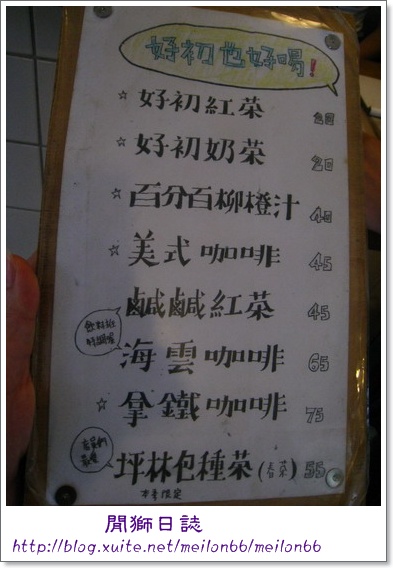 好初也好喝!
☆ 好初紅茶 20
☆ 好初奶茶 20
☆ 百分百柳橙汁 40
☆ 美式咖啡 45
鹹鹹紅茶 45
海雲咖啡 65
☆ 拿鐵咖啡 75
坪林包種茶(春茶) 55
本季限定
閒獅日誌
http://blog.xuite.net/meilon66/meilon66